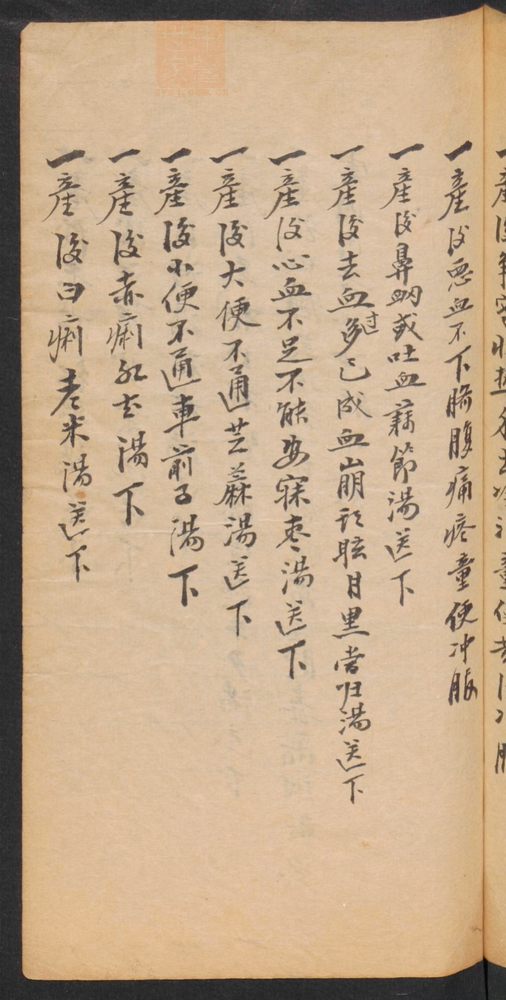 一產後惡血不下臍腹痛疼童便冲服
一產後鼻衄或吐血藕節湯送下
一產後去血過多已成血崩頭眩目黑當归湯送下
一產後心血不足不能安寐枣湯送下
一產後大便不通芝蔴湯送下
一產後小便不通車前子湯下
一產後赤痢紅花湯下
一產後白痢老米湯送下